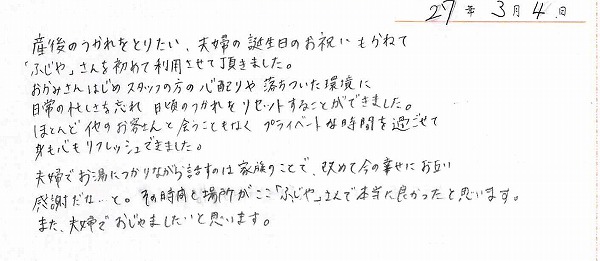 27年 3月 4日
産後のつかれをとりたい、夫婦の誕生日のお祝いもかねて
「ふじや」さんを初めて利用させて頂きました。
おかみさんはじめスタッフの方の心配りや落ちついた環境に
日常の忙しさを忘れ 日頃のつかれをリセットすることができました。
ほとんど他のお客さんと会うこともなく プライベートな時間を過ごせて
身も心もリフレッシュできました。
夫婦でお湯につかりながら話すのは家族のことで、改めて今の幸せにお互い
感謝だな…と。その時間と場所がここ「ふじや」さんで本当に良かったと思います。
また、夫婦でおじゃましたいと思います。